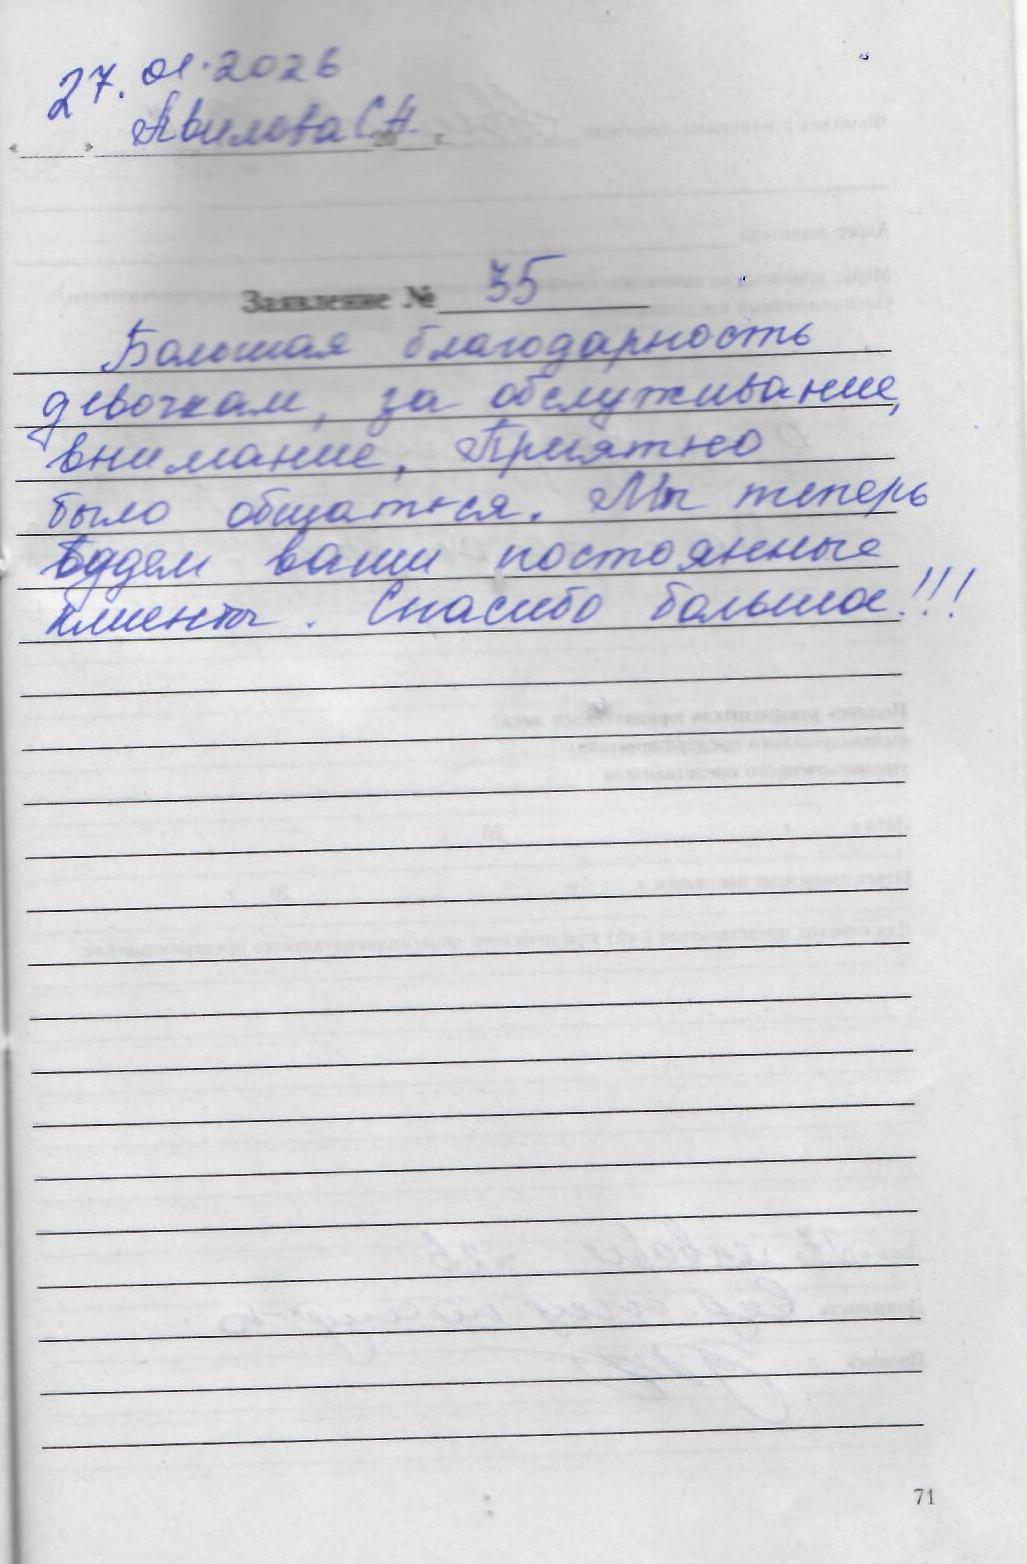 27.01.2026
Авилова С.А.
« » 20 г.
Заявление № 35
Большая благодарность
девочкам, за обслуживание,
внимание, Приятно
было общаться. Мы теперь
будем ваши постоянные
клиенты. Спасибо большое!!!
71